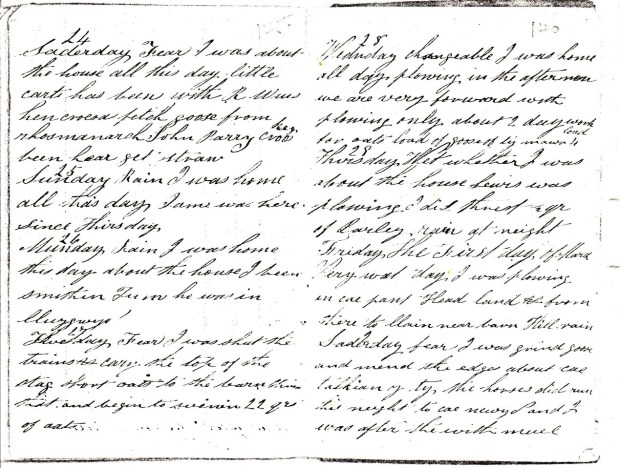 24
Saderday Fear I was about
the house all this day little
cart has been with R Wms
hen crocoa fetch goose from
rhosmanarch John Parry Croes
heg.
been hear get straw
25
Sunday Rain I was home
all this day Jame was here
since Thirsday
26
Munday Rain I was home
this day about the house I been
smithin he was in
Llwygwyd
27
Thusday Fear I was shut the
trains & cary the top of the
stag short oats to the barn thin
that and begin to 22 yrs
of oats.
28
Wednsday changeable I was home
all day plowing in the afternoon
we are very forward with
plowing only about 2 day work
for oats load of gosse ty mawr 4
load
28
Thirsday Wet whether I was
about the house Lewis was
plowing I did thresh 4 qr
of Barley rain at neight
Friday The First day of March
Very wat day I was plowing
in cae pant Head land & from
there to llain near barn still rain
Saderday fear I was grind goss
and mend the edges about cae
y ty, the horses did run
this neight to cae newydd and I
was after the with muel